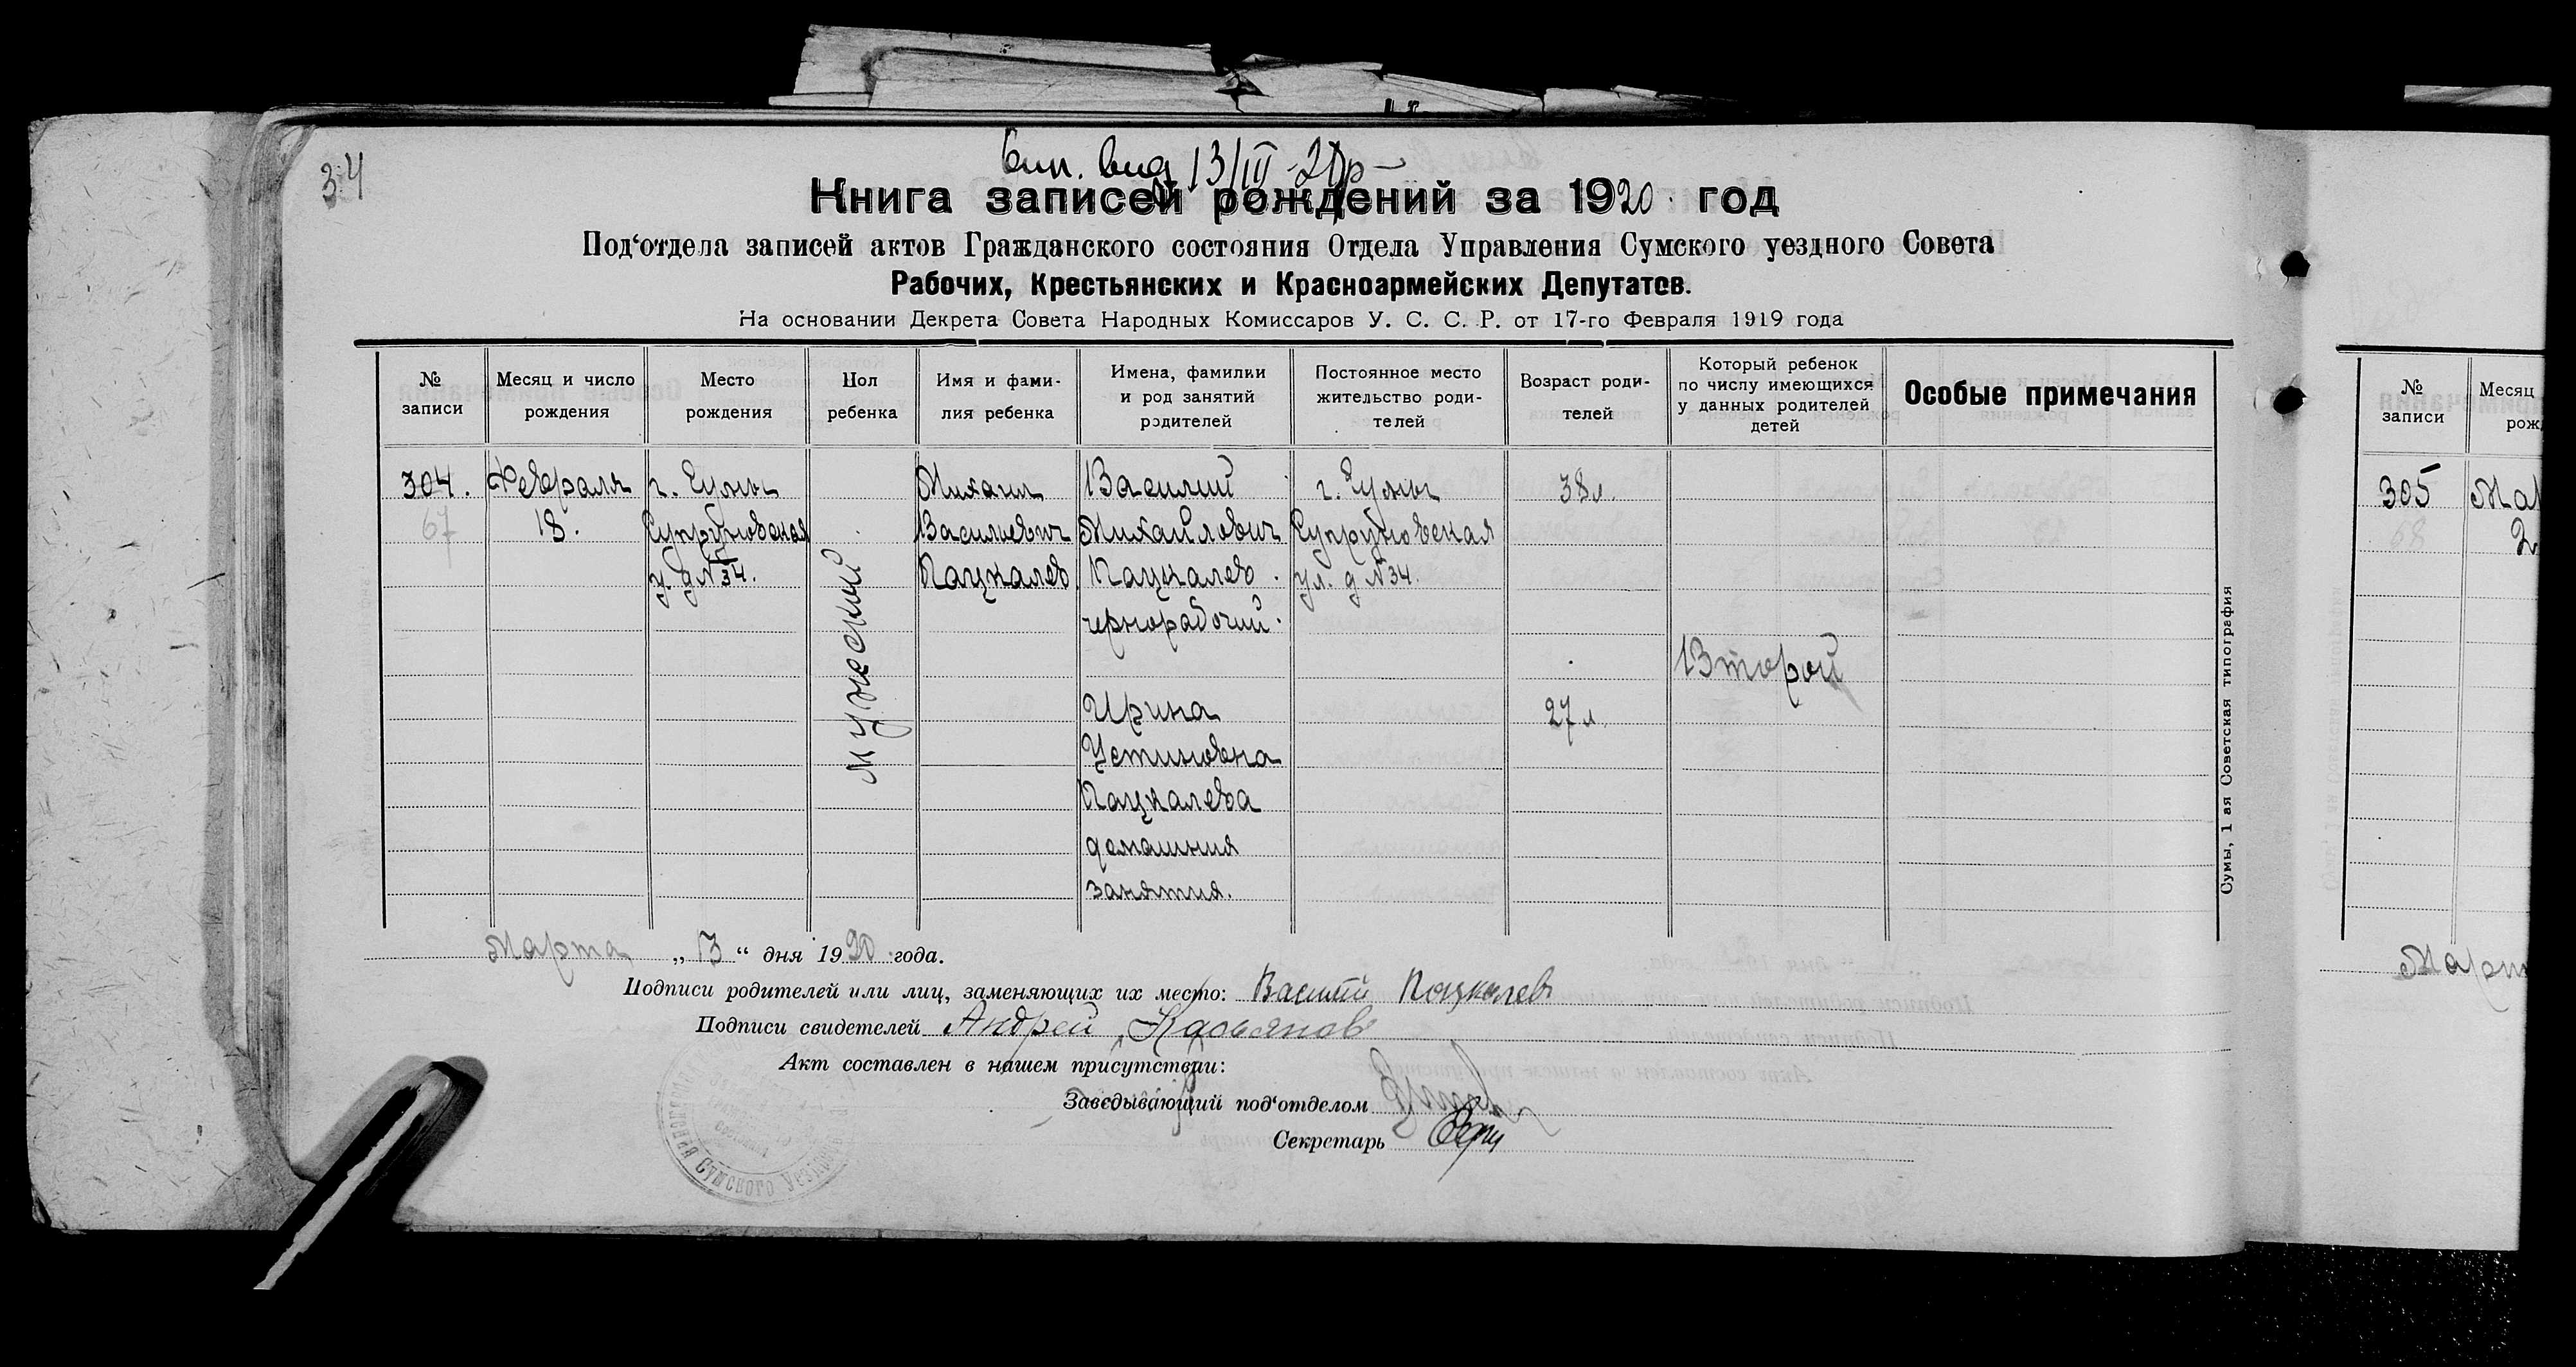 34
вып. вид 13/III-20р-
Книга записей рождений за 1920 год
Под‘отдела записей актов Гражданского состояния Отдела Управления Сумского уездного Совета
Рабочих, Крестьянских и Красноармейских Депутатов.
На основании Декрета Совета Народных Комиссаров У. С. С. Р. от 17-го Февраля 1919 года
№ записи
Месяц и число рождения
Место рождения
Пол ребенка
Имя и фамилия ребенка
Имена, фамилии и род занятий родителей
Постоянное место жительство родителей
Возраст родителей
Который ребенок по числу имеющихся у данных родителей детей
Особые примечания
304. Февраля г. Сумы Михаил Василий г. Сумы 38 л.
67 18. Супруновская Васильевич Михайлович Супруновская
у. д №34. Пацкалев Пацкалев ул. д №34.
чернорабочий.
мужеский
Второй
Ирина 27 л.
Устиновна
Пацкалева
домашния
занятия.
Сумы, 1 ая Советская типография
Марта „13“ дня 1920 года.
Подписи родителей или лиц, заменяющих их место: Василий Пацкалев
Подписи свидетелей Андрей Касьянов
Акт составлен в нашем присутствии:
Заведывающий под‘отделом
Секретарь
Сумского Уездного
№ записи
Месяц
рож
305 Ма
68 2
Март